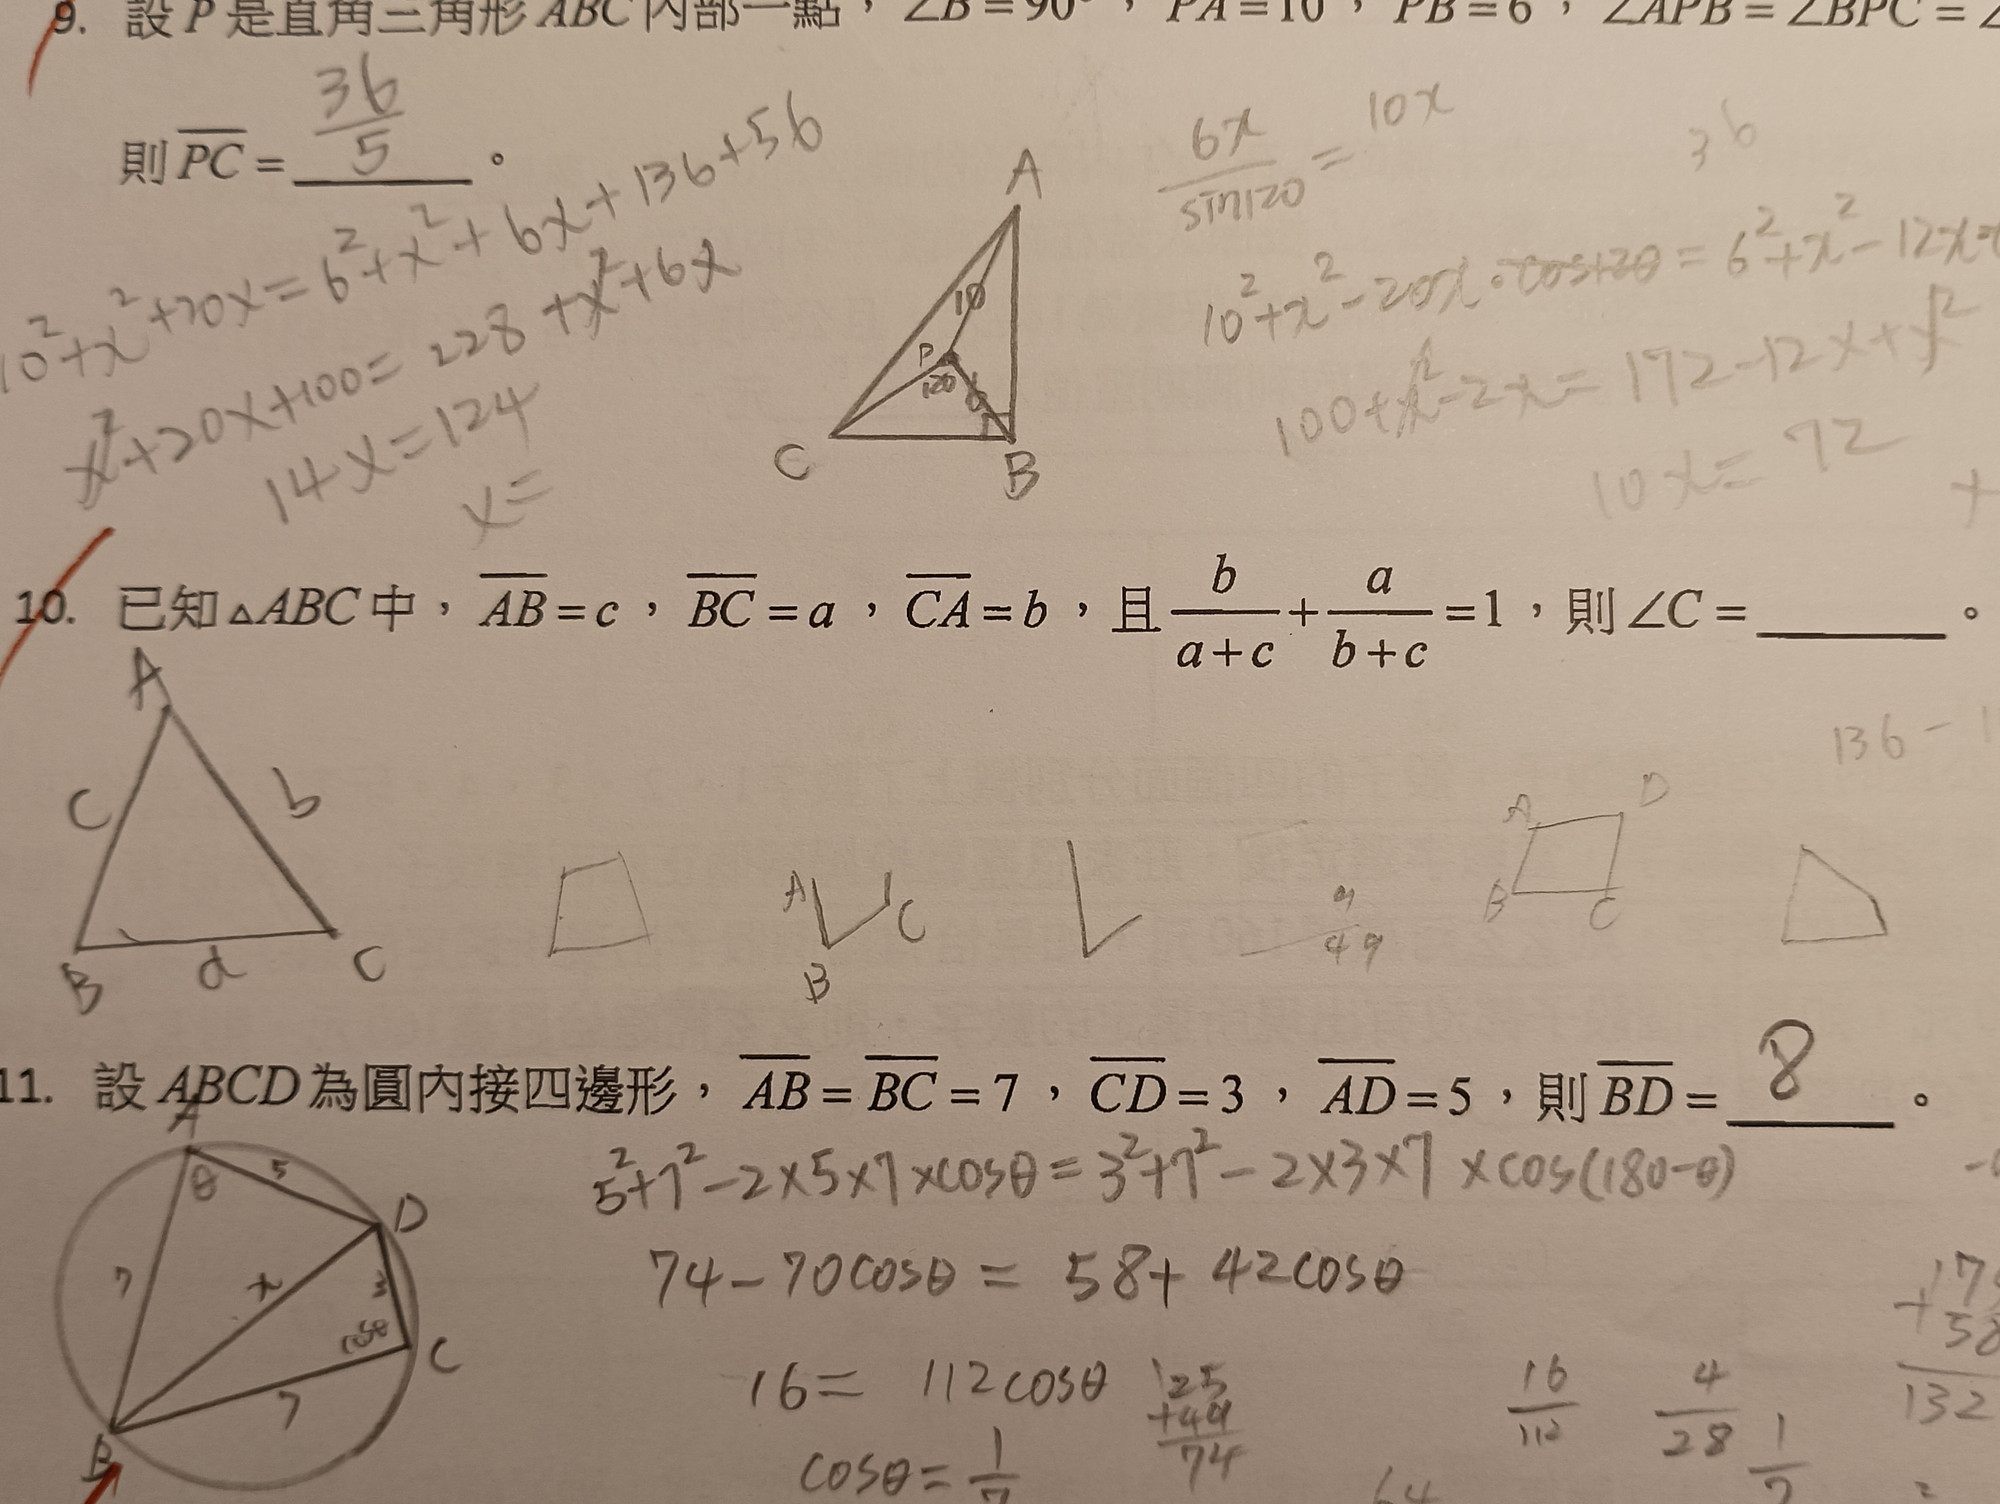 9. 設 P 是直角三角形 ABC 內部一點，∠B = 90°，PA = 10，PB = 6，∠APB = ∠BPC = ∠
則 PC = 36/5 。
10²+x²+20x=6²+x²+6x+136+56
x²+20x+100=228+x²+6x
14x=124
x=
A
10
P
120
6
C
B
6x/sin120 = 10x
36
10²+x²-20x·cos120=6²+x²-12x·
100+x²-2x=172-12x+x²
10x=72
10. 已知△ABC中，AB=c，BC=a，CA=b，且 b/(a+c) + a/(b+c) =1，則∠C=______。
136-1
A
c
b
B
a
C
A
B
C
9/49
A
D
B
C
11. 設 ABCD 為圓內接四邊形，AB=BC=7，CD=3，AD=5，則 BD= 8 。
A
θ
5
D
7
x
3
C
7
B
5²+7²-2×5×7×cosθ=3²+7²-2×3×7×cos(180-θ)
74-70cosθ=58+42cosθ
16=112cosθ
25
+49
74
16/112
4/28
1/7
58
132
cosθ=1/7
64